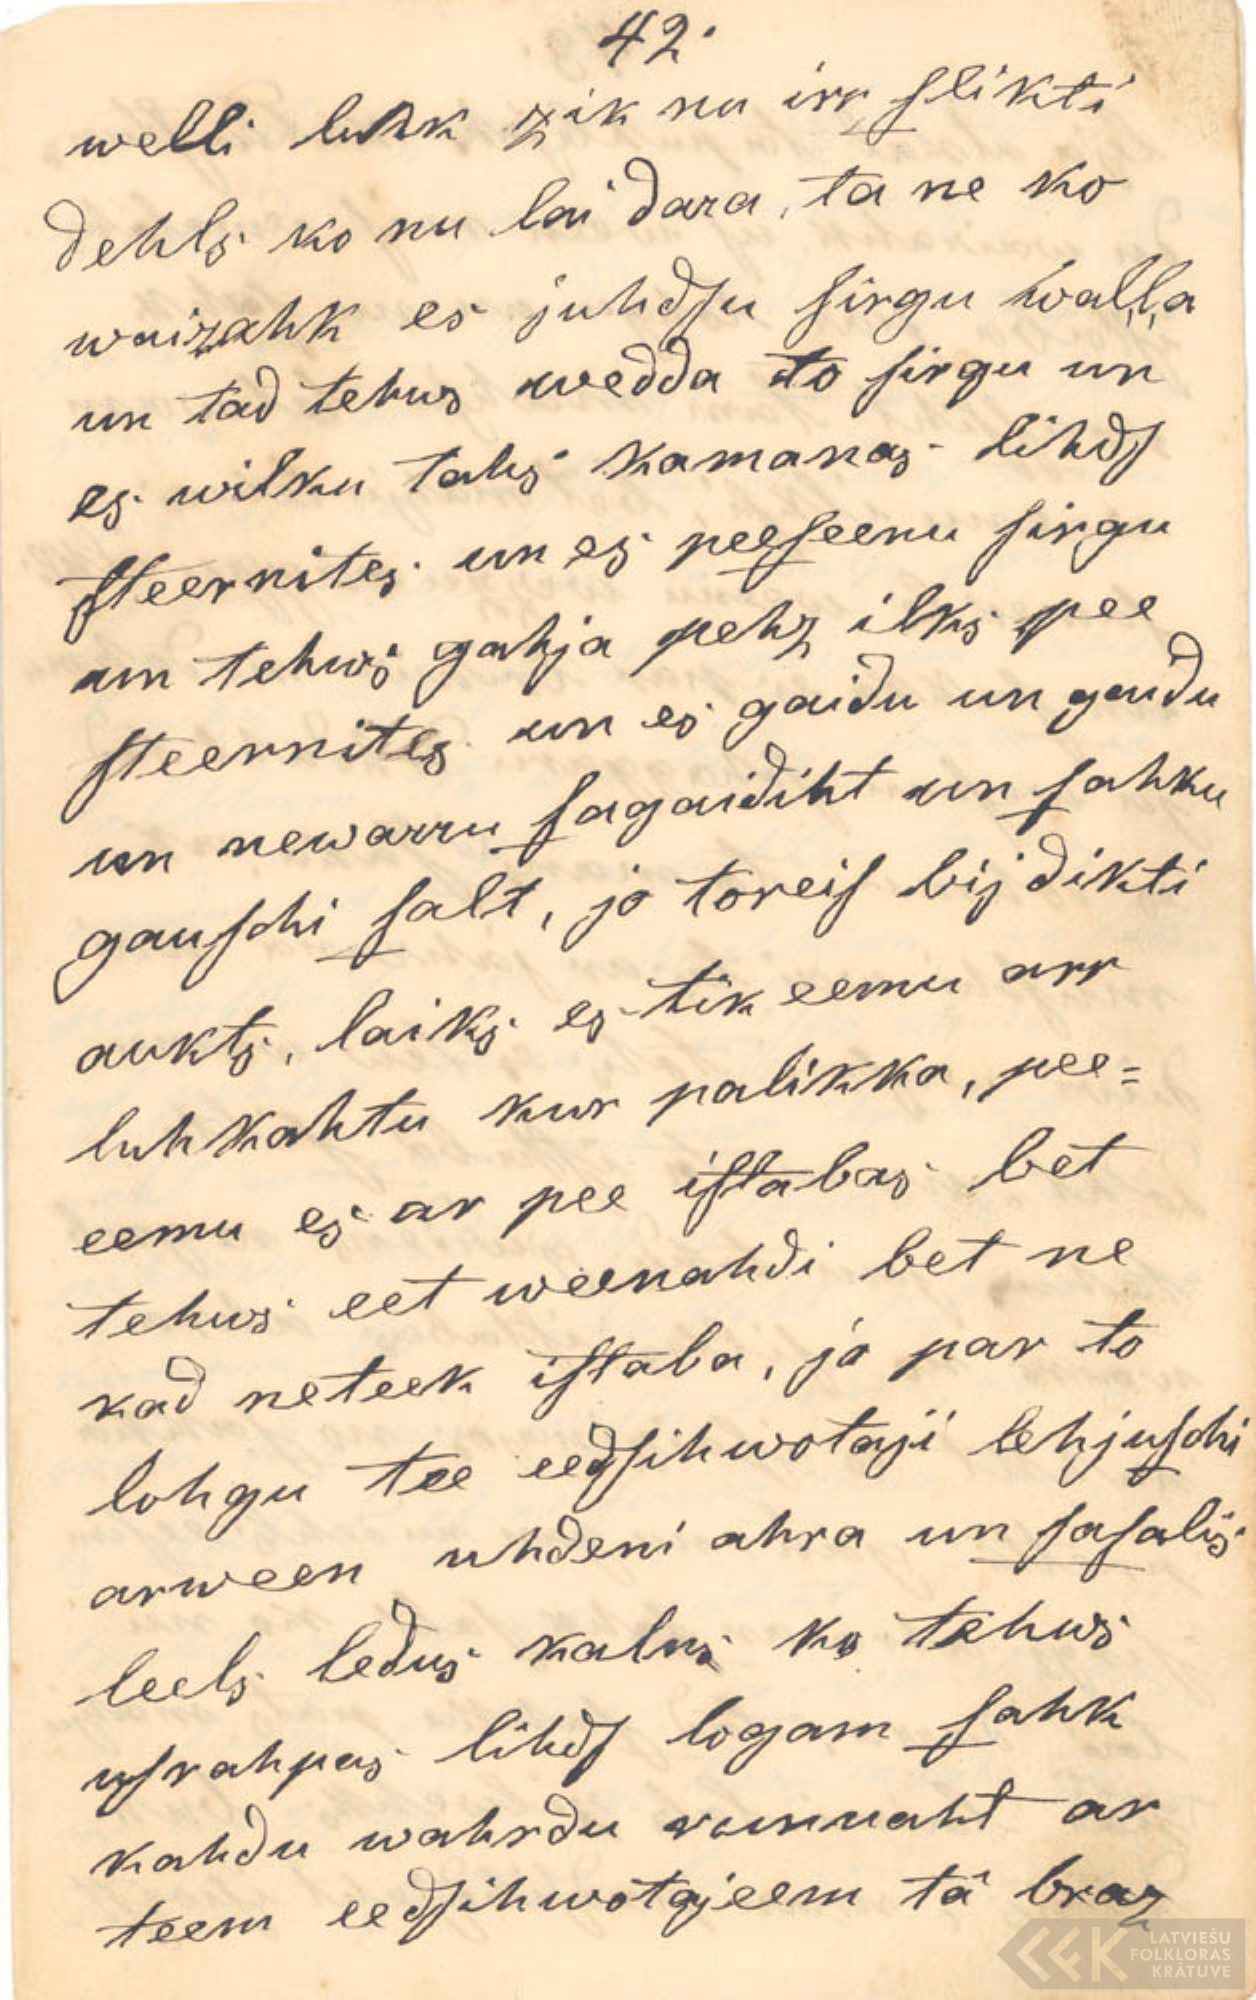 42.
welli luhk zik nu irr ſlikti
dehls ko nu lai dara, ta ne ko
wairahk es juhdſu sirgu waļļa
un tad tehws wedda to sirgu un
es wilku tahs kamanas lihdſ
ſteernites un es peeſeenu sirgu
un tehws gahja pehz ilks pee
ſteernites un es gaidu un gaidu
un newarru ſagaidiht un ſahku
gauſchi ſalt, jo toreiſ bij dikti
aukts, laiks es tik eemu arr
luhkahtu kur palikka, pee=
eemu es ar pee iſtabas bet
tehws eet weenahdi bet ne
kad neteek iſtaba, jo par to
lohgu tee eedſihwotaji lehjuſchi
arween uhdeni ahra un ſaſalis
leels ledus kalns ko tehws
uſrahpus lihdſ logam ſahk
kahdu wahrdu runnaht ar
teem eedſihwotajeem tā braz
LATVIEŠU
FOLKLORAS
KRĀTUVE